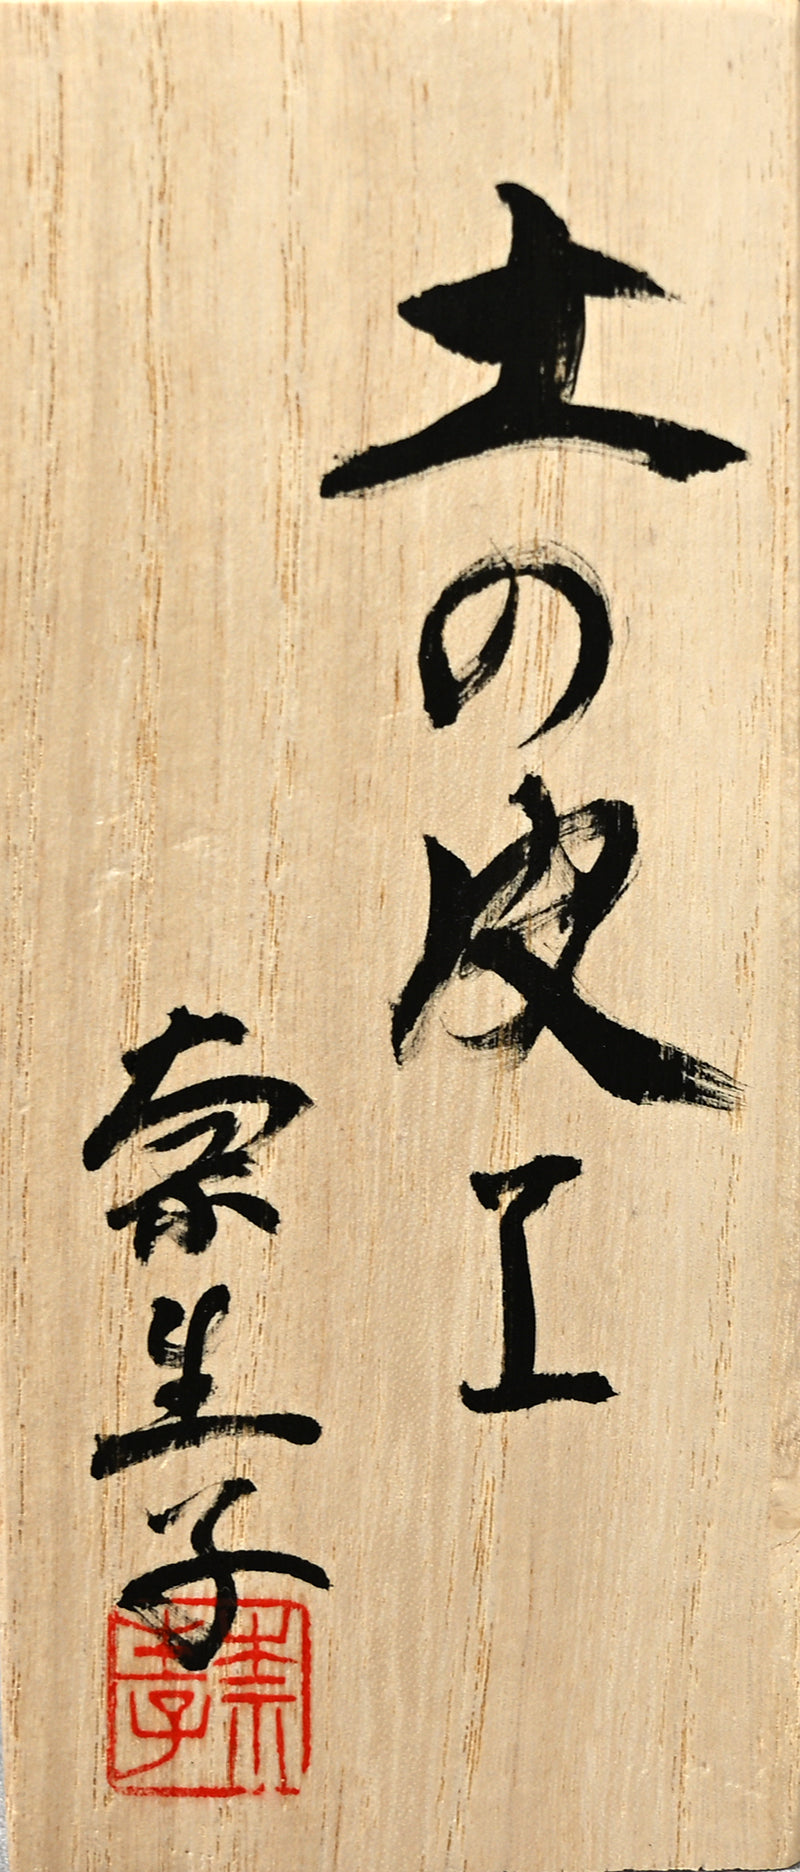 土の皮工
奈生子